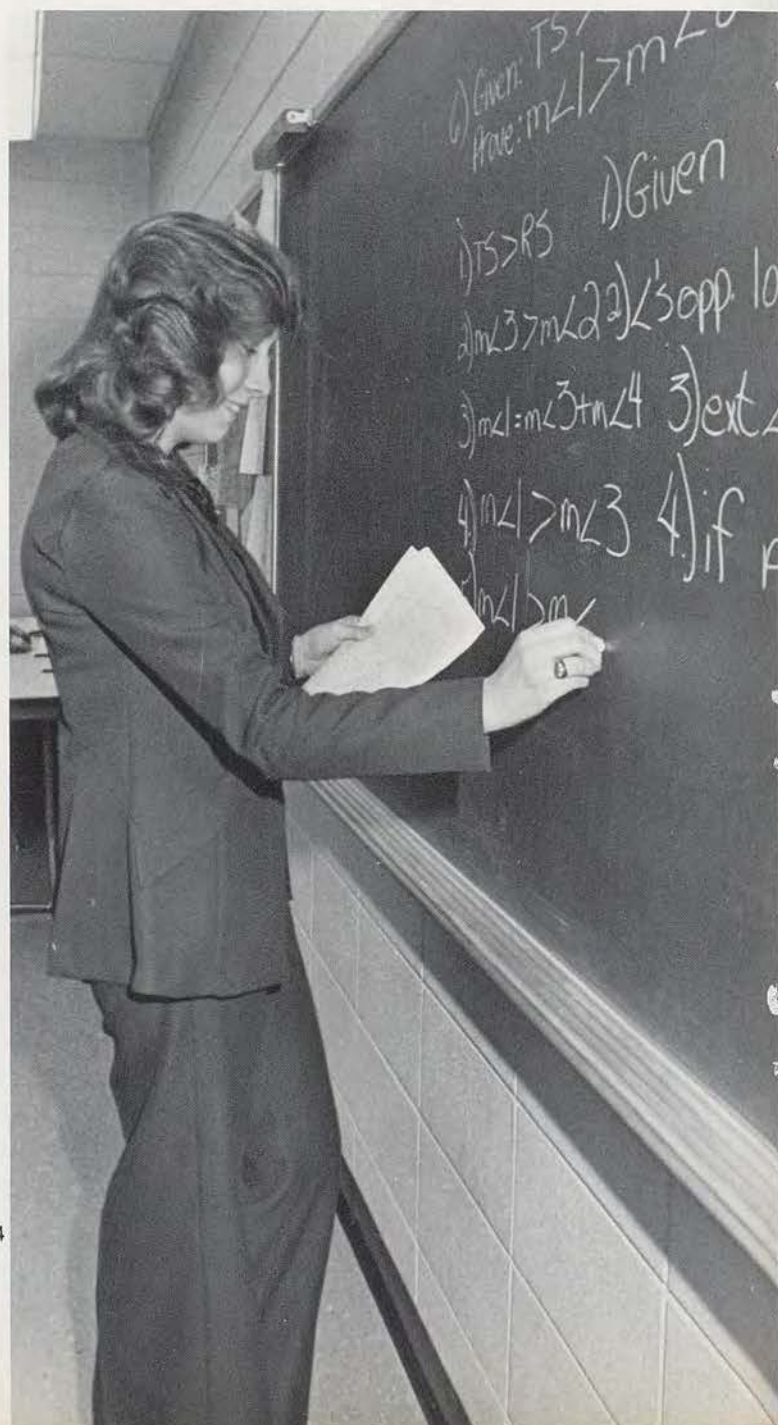 6) Given: TS >
Prove: m<1 > m<
1) TS > RS 1) Given
2) m<3 > m<2 2) <'s opp.
3) m<1 = m<3 + m<4 3) ext <
4) m<1 > m<3 4.) if
5) m<1 > m<
4